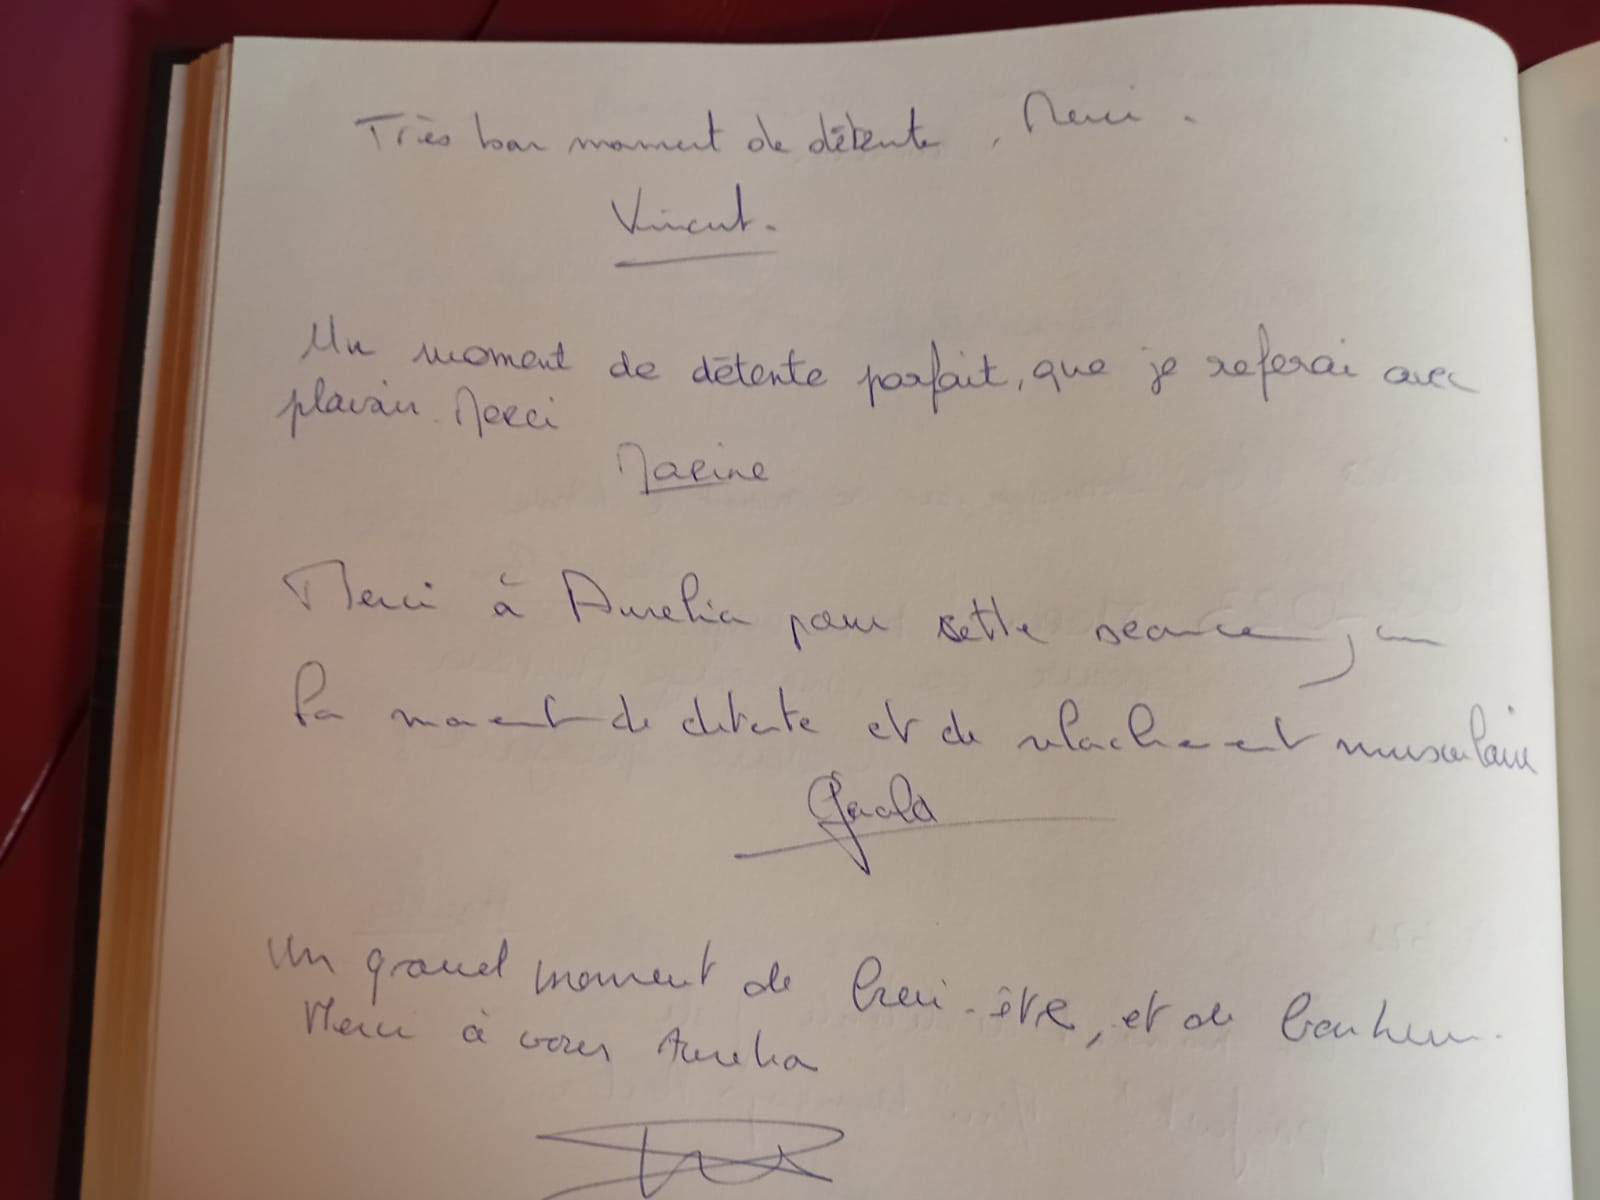 Très bon moment de détente, Merci.
Vincent.
Un moment de détente parfait, que je referai avec
plaisir. Merci
Marine
Merci à Aurelia pour cette séance, un
moment de détente et de relachement musculaire
Un grand moment de bien-être, et de bonheur.
Merci à vous Aurelia